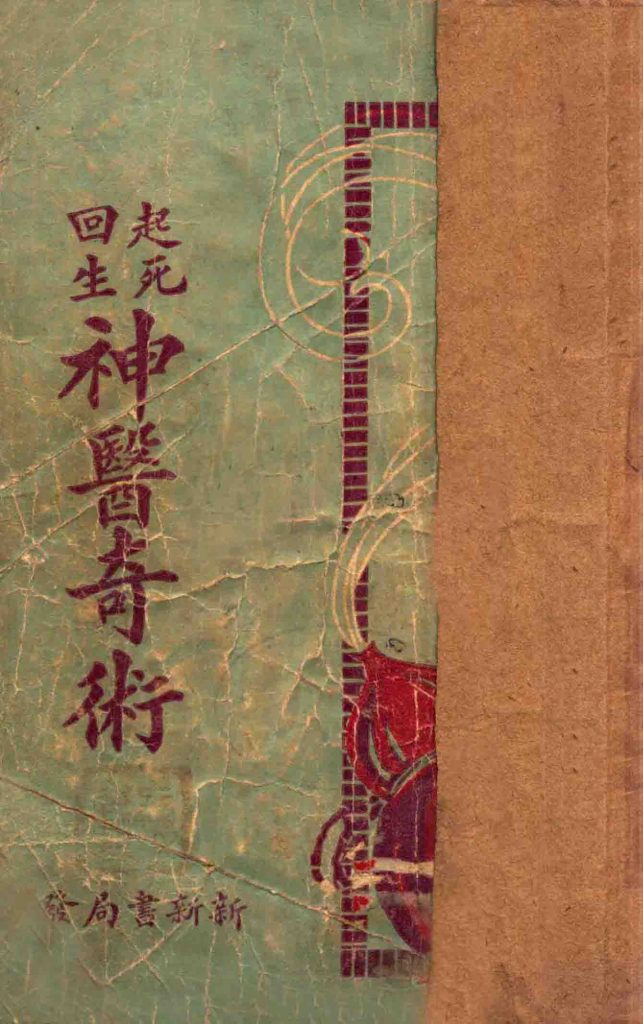 起死
回生
神醫奇術
新新書局發